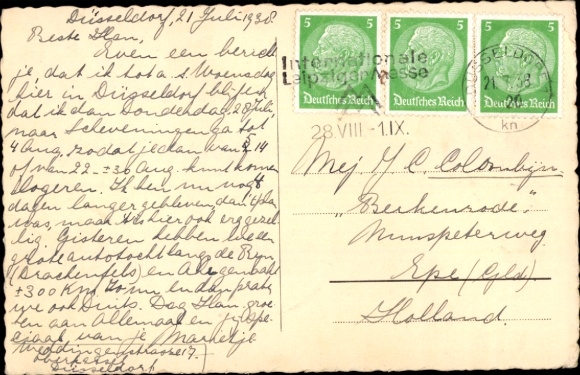 Düsseldorf, 21 Juli 1938
Beste Han,
Even een bericht
je, dat ik tot a.s. Woensdag
hier in Düsseldorf blijf en
dat ik dan Donderdag 28 Juli,
naar Scheveningen ga tot
4 Aug, zodat je dan van
of van 22 - ± 30 Aug. kunt komen
logeren. Ik ben nu nog
dagen langer gebleven dan
was, maar is hier ook erg gezel
lig. Gisteren hebben we een
grote autotocht langs de Rijn
(Drachenfels) en
± 300 Km. en dan
we ook Duits. Dag Han, groe
ten aan Allemaal en
van je Marietje
17
Oberkassel
Düsseldorf
5 5 5
Deutsches Reich Deutsches Reich Deutsches Reich
Internationale
Leipziger Messe
28.VIII.-1.IX.
DÜSSELDORF
21.7.38
kn
Mej. Y. C. Colombijn.
"Berkenrode."
Nunspeterweg
Epe (Gld.)
Holland.